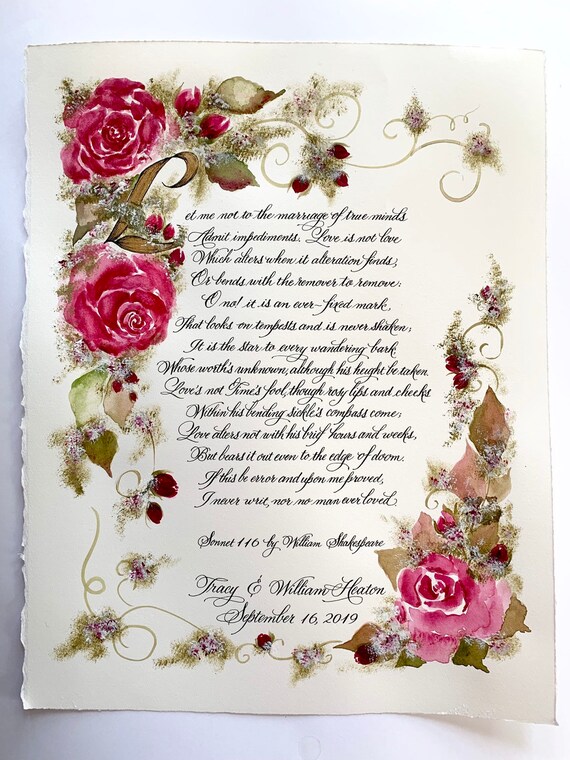 Let me not to the marriage of true minds
Admit impediments. Love is not love
Which alters when it alteration finds,
Or bends with the remover to remove:
O no! it is an ever-fixed mark,
That looks on tempests and is never shaken;
It is the star to every wandering bark
Whose worth's unknown, although his height be taken.
Love's not Time's fool, though rosy lips and cheeks
Within his bending sickle's compass come;
Love alters not with his brief hours and weeks,
But bears it out even to the edge of doom.
If this be error and upon me proved,
I never writ, nor no man ever loved.
Sonnet 116 by William Shakespeare
Tracy & William Heaton
September 16, 2019